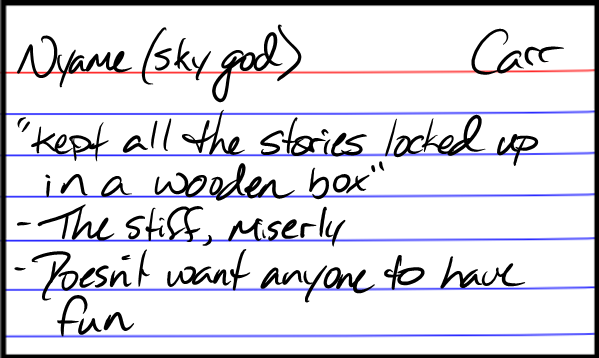 Nyame (sky god) Carr
"kept all the stories locked up
in a wooden box"
- The stiff, miserly
- Doesn't want anyone to have
fun